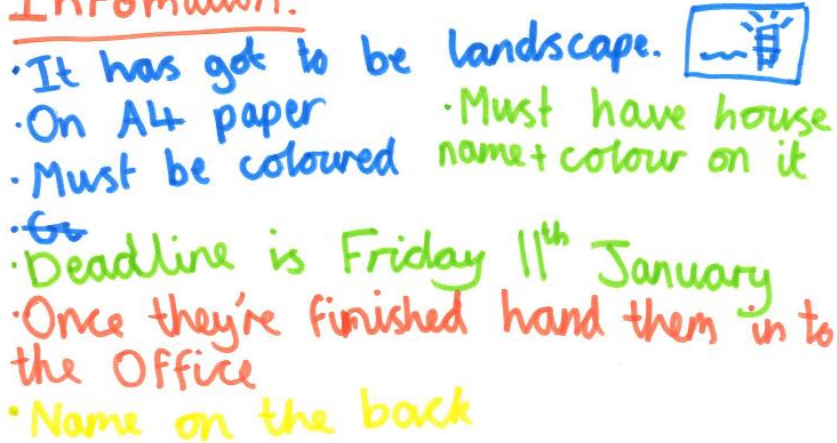 Infomation:
·It has got to be landscape.
·On A4 paper
·Must be coloured
·Must have house
name + colour on it
·Deadline is Friday 11th January
·Once they're finished hand them in to
the Office
·Name on the back